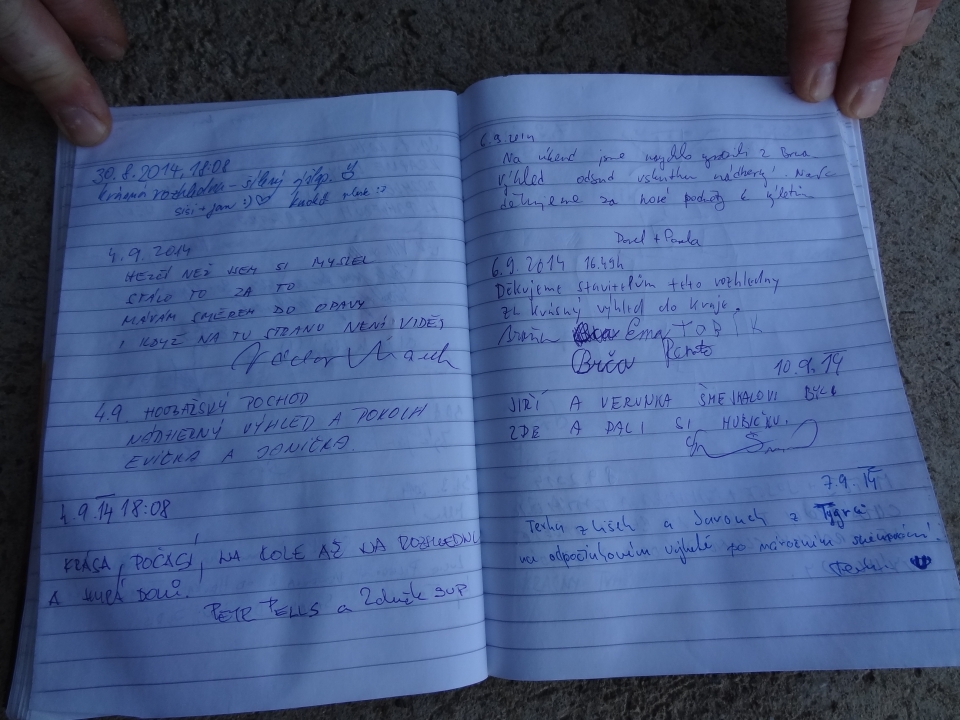 30.8.2014, 18:08
krásná rozhledna - šílený výšlap
sisi + jan :) ♡
4.9.2014
HEZČÍ NEŽ JSEM SI MYSLEL
STÁLO TO ZA TO
MÁVÁM SMĚREM DO OPAVY
I KDYŽ NA TU STRANU NENÍ VIDĚT
4.9. HOUBAŘSKÝ POCHOD
NÁDHERNÝ VÝHLED A POKOCH
EVIČKA A JANIČKA.
4.9.14 18:08
KRÁSA, POČASÍ, NA KOLE AŽ NA ROZHLEDNU
A HURÁ DOMŮ.
PETR PELLS a Zdeněk SUP
6.9.2014
Na víkend jsme z Brna.
Výhled odsud vskutku nádherný. Navíc
děkujeme za nové podněty k výletům.
Pavel + Pavla
6.9.2014 16.49h
Děkujeme stavitelům této rozhledny
za krásný výhled do kraje.
Ema TOBIK
Brča Renata
10.9.14
JIŘÍ A VERUNKA ŠMEJKALOVI BYLI
ZDE A DALI SI HUBIČKU.
7.9.14
Terka z Líšeň a z Tygrů
na odpočinkovém výletě po náročném
Terka ♥